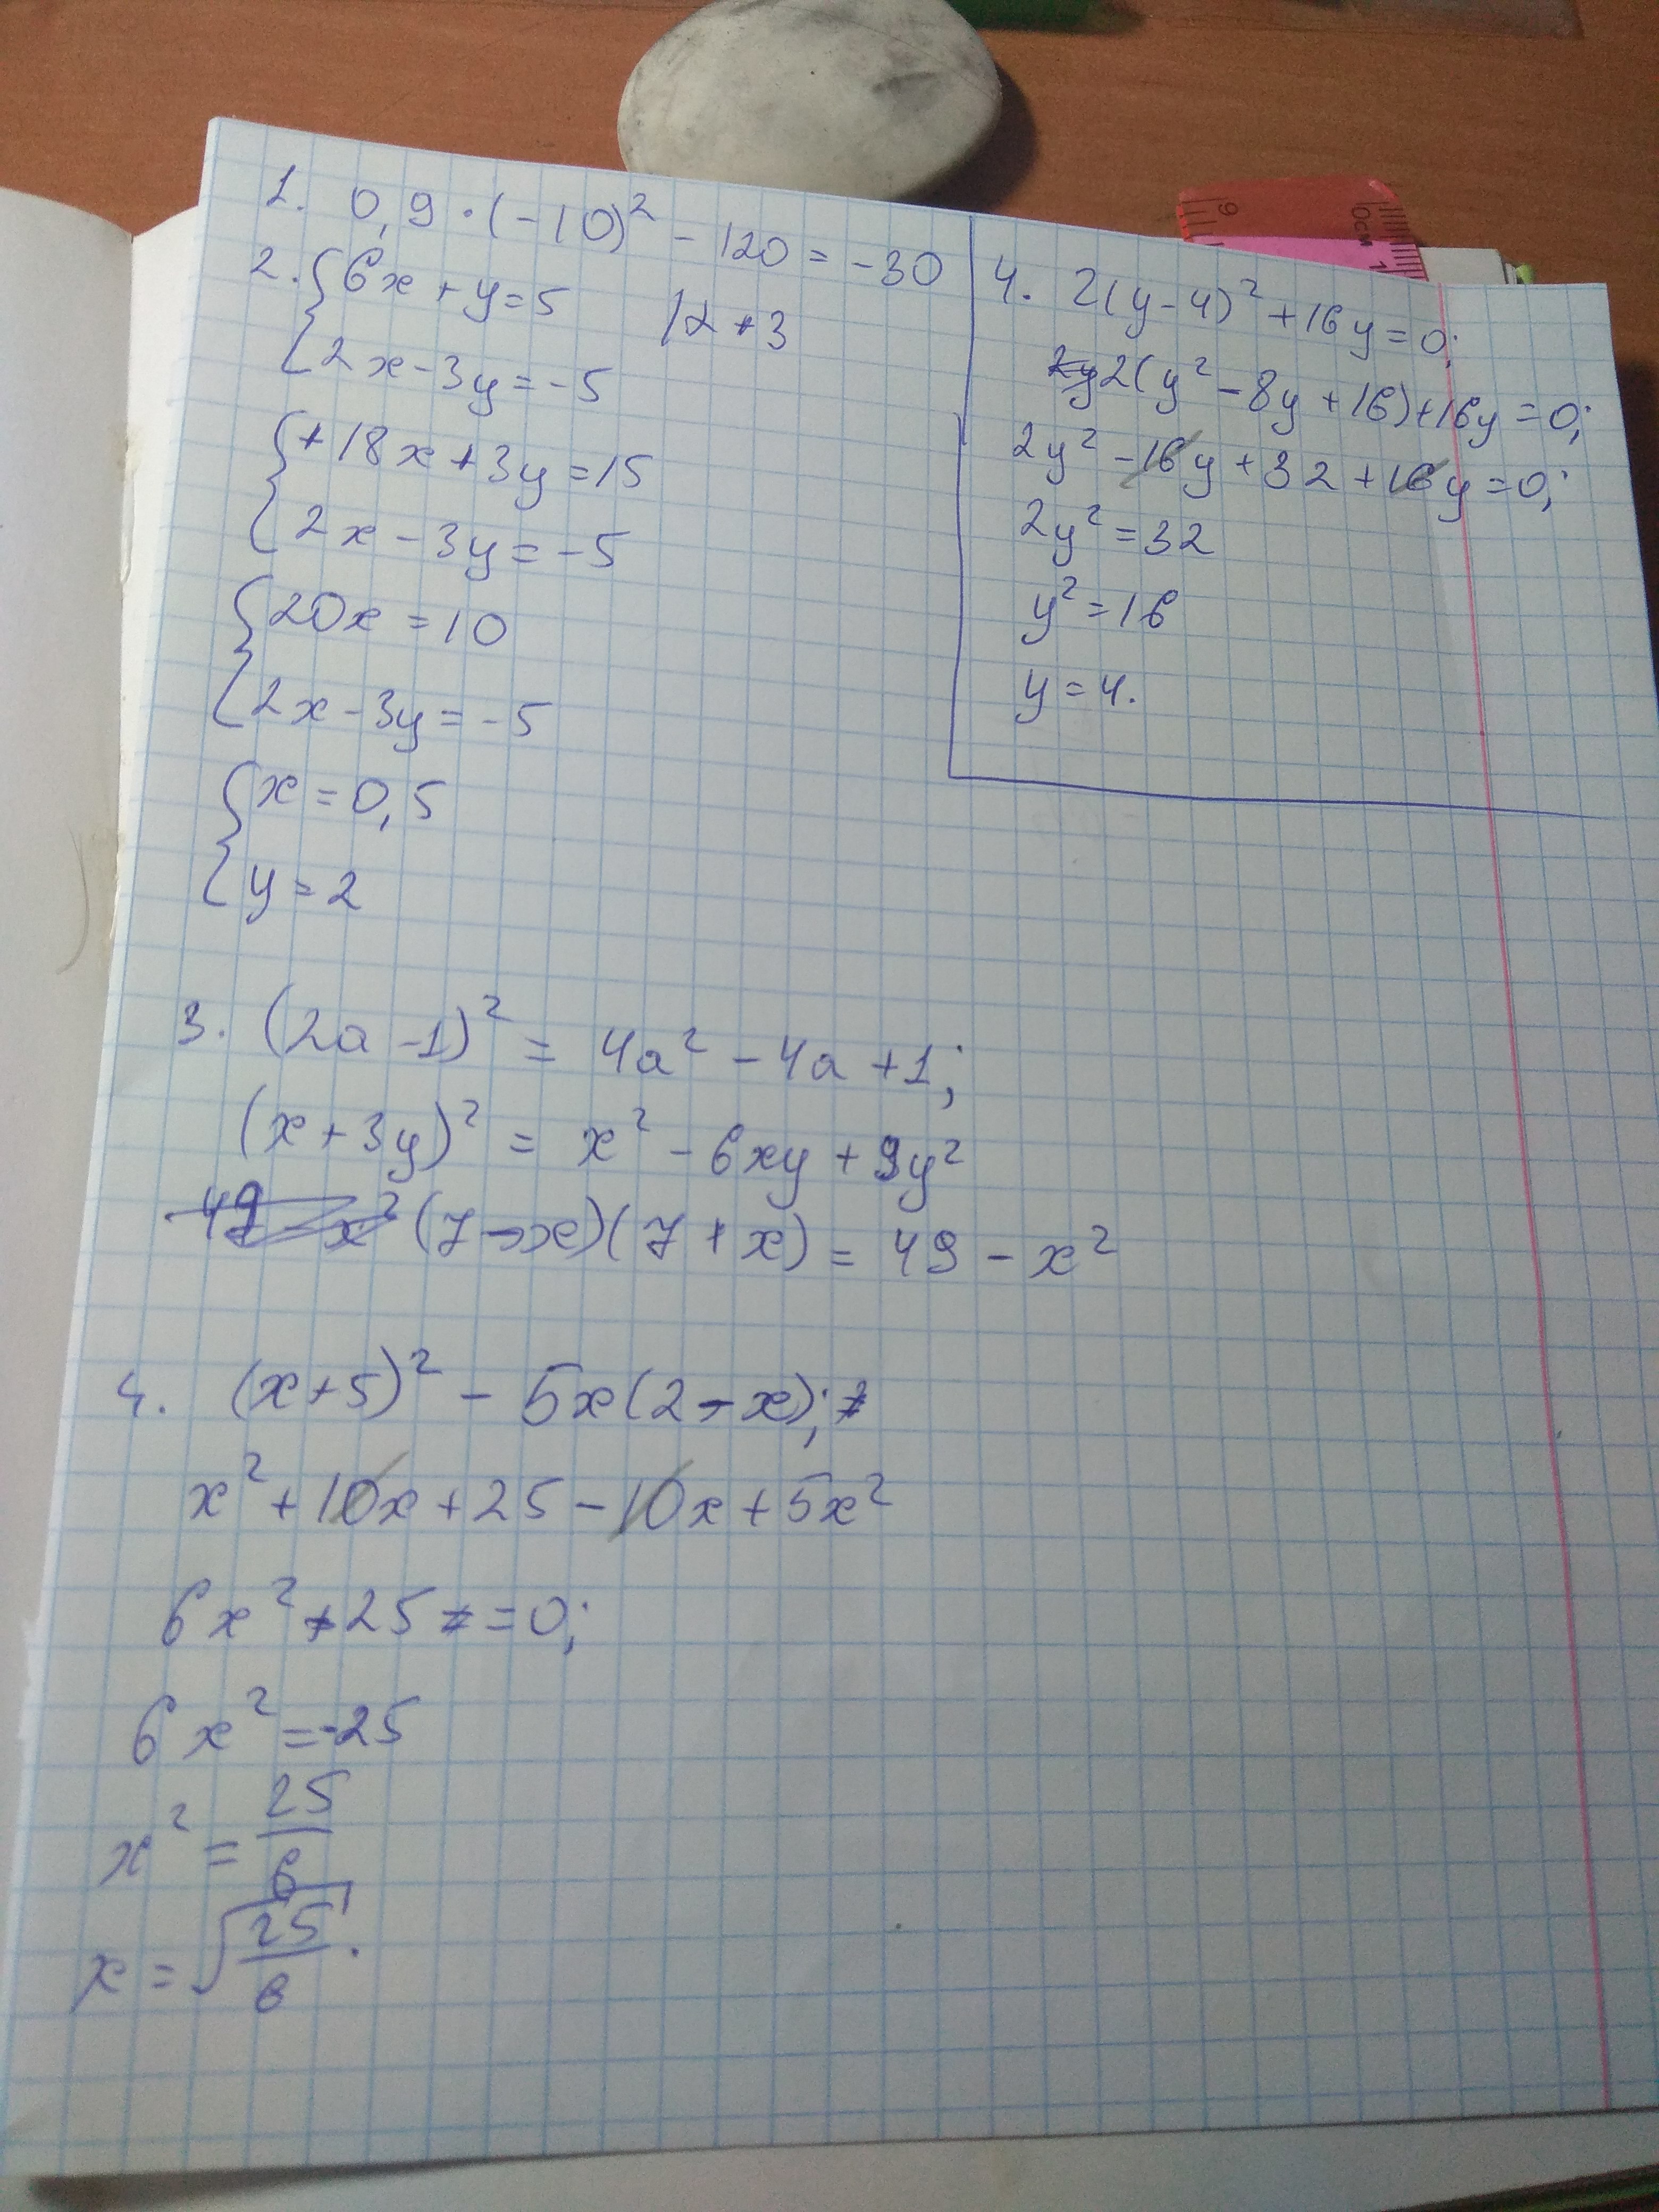 1. 0,9 · (-10)² - 120 = -30
2. { 6x + y = 5 | 2 * 3
2x - 3y = -5
{ + 18x + 3y = 15
2x - 3y = -5
{ 20x = 10
2x - 3y = -5
{ x = 0,5
y = 2
3. (2a - 1)² = 4a² - 4a + 1;
(x + 3y)² = x² - 6xy + 9y²
49 x² (7 - x)(7 + x) = 49 - x²
4. (x + 5)² - 5x(2 - x);
x² + 10x + 25 - 10x + 5x²
6x² + 25 = = 0;
6x² = -25
x² = 25/6
x = √(25/6).
4. 2(y - 4)² + 16y = 0;
2y 2(y² - 8y + 16) + 16y = 0;
2y² - 16y + 32 + 16y = 0;
2y² = 32
y² = 16
y = 4.
9
0см
1